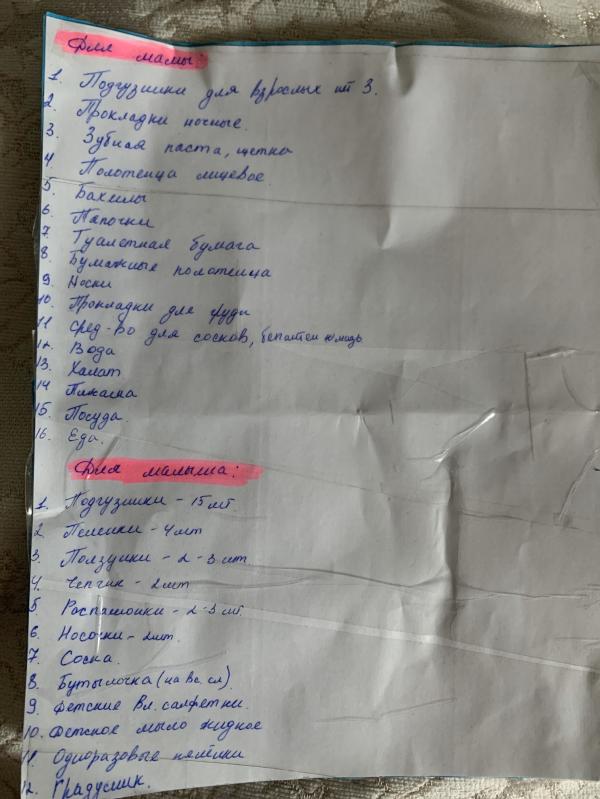 Для мамы:
1. Подгузники для взрослых шт 3.
2. Прокладки ночные.
3. Зубная паста, щетка
4. Полотенца лицевое
5. Бахилы
6. Тапочки
7. Туалетная бумага
8. Бумажные полотенца
9. Носки
10. Прокладки для груди
11 Сред-во для сосков, бепантен мазь
12. Вода
13. Халат
14 Пижама
15. Посуда.
16. Еда.
Для малыша:
1. Подгузники - 15 шт.
2 Пеленки - 4 шт
3. Ползунки - 2 - 3 шт
4. Чепчик - 2 шт
5 Распашонки - 2-3 шт.
6. Носочки - 2 шт.
7. Соска.
8. Бутылочка (на вс. сл).
9. Детские вл. салфетки.
10. Детское мыло жидкое
11. Одноразовые пелёнки
12. Градусник.